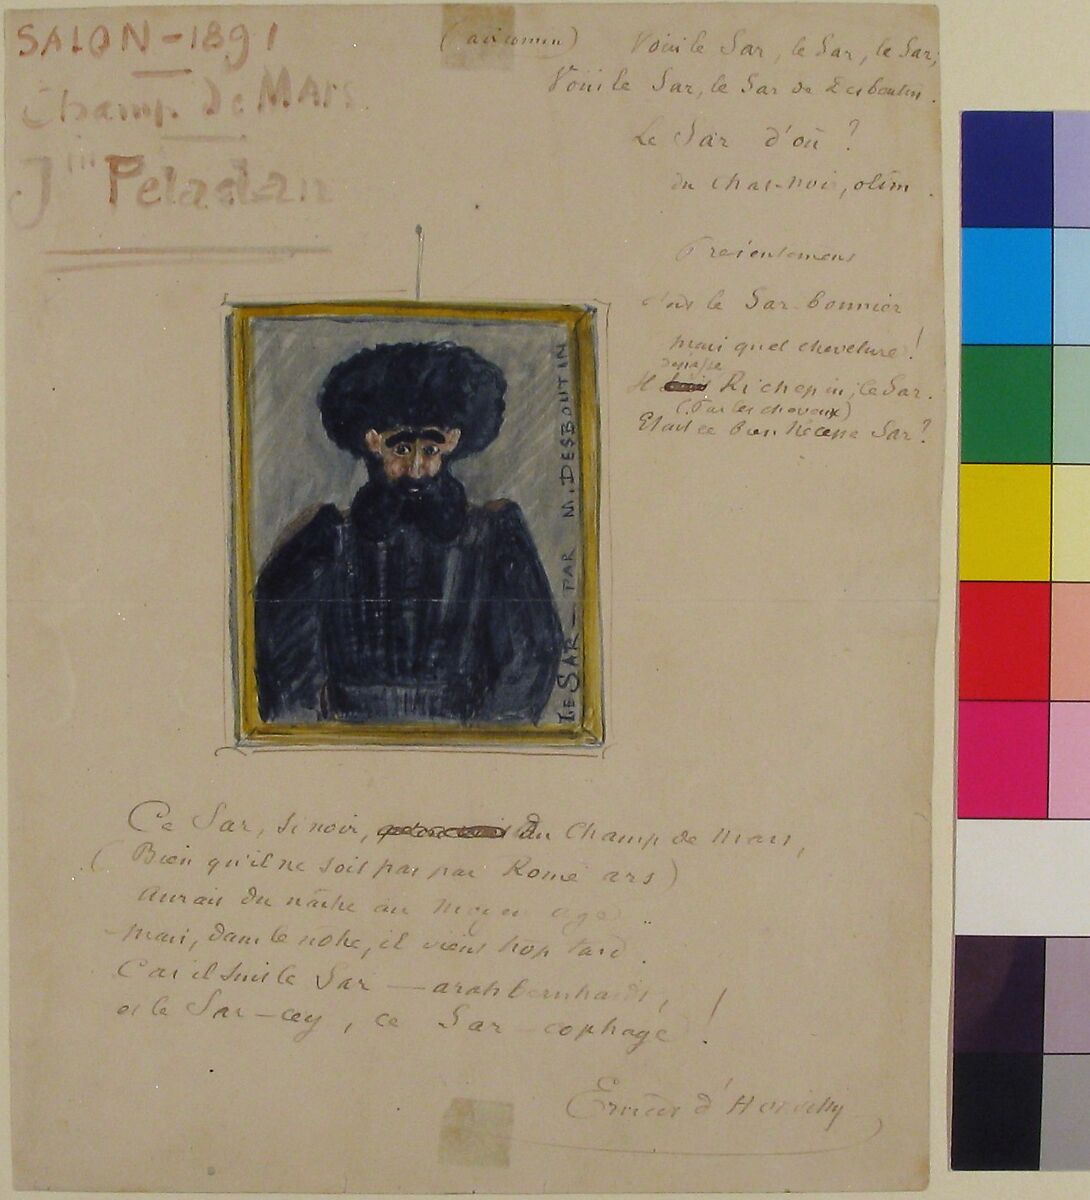 SALON - 1891
Champ de MArs
Jin Peladan
Voici le Sar, le Sar, le Sar,
Voici le Sar, le Sar de Desboutin.
Le Sar d'où ?
du Chat-noir, olim.
Présentement
le Sar bonnier
mais quel chevelure !
dépasse
Il Richepin, le Sar.
(Par les cheveux)
Etait ce bien nécesse Sar ?
LE SAR - PAR M. DESBOUTIN
Ce Sar, si noir, du Champ de Mars,
(Bien qu'il ne soit pas par Rome ars)
Aurait du naître au moyen age ..
Mais, dans le nôtre, il vient trop tard.
Car il suit le Sar — arah bernhardt,
et le Sar - cey, ce Sar cophage !
Ernest d'Hervilly